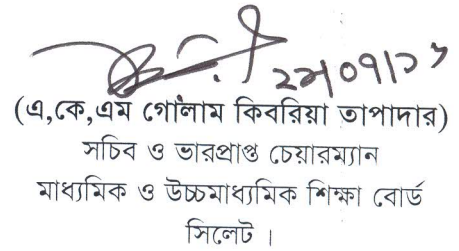 (এ,কে,এম গোলাম কিবরিয়া তাপাদার)
সচিব ও ভারপ্রাপ্ত চেয়ারম্যান
মাধ্যমিক ও উচ্চমাধ্যমিক শিক্ষা বোর্ড
সিলেট ।